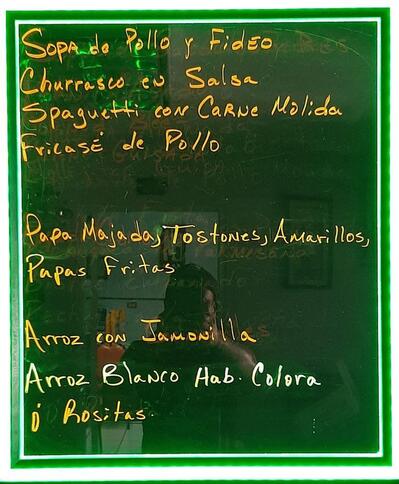 Sopa de Pollo y Fideo
Churrasco en Salsa
Spaguetti con Carne Molida
Fricasé de Pollo
Papa Majada, Tostones, Amarillos,
Papas Fritas
Arroz con Jamonilla
Arroz Blanco Hab. Colora
ó Rositas.